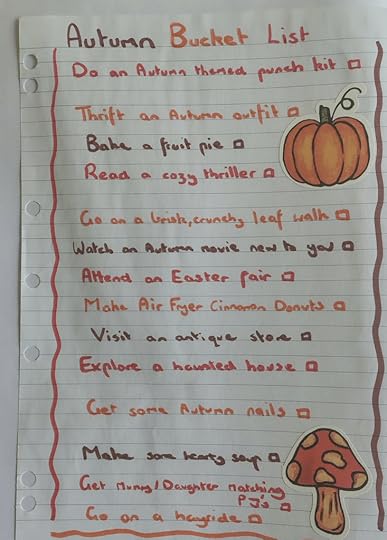 Autumn Bucket List
Do an Autumn themed punch kit
Thrift an Autumn outfit
Bake a fruit pie
Read a cozy thriller
Go on a brisk, crunchy leaf walk
Watch an Autumn movie new to you
Attend an Easter fair
Make Air Fryer Cinnamon Donuts
Visit an antique store
Explore a haunted house
Get some Autumn nails
Make some hearty soup
Get Mummy/Daughter matching
PJ's
Go on a hayride